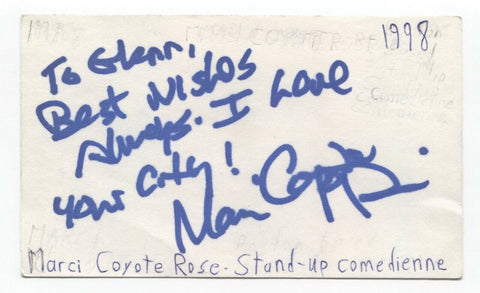 1998
To Glenn,
Best Wishes
Always. I Love
your City!
Marci Coyote Rose - Stand-up comedienne